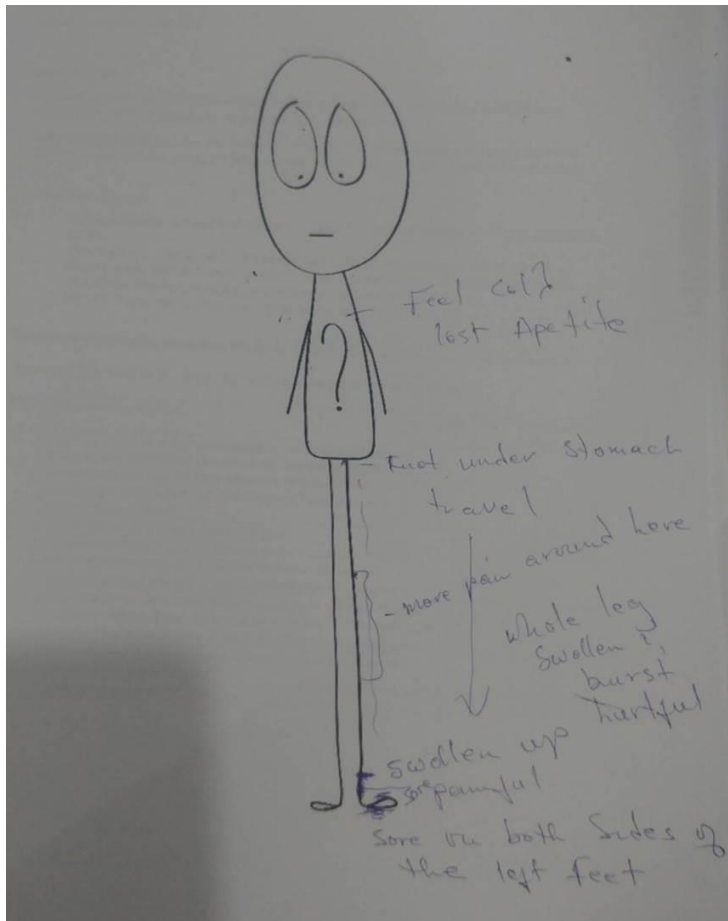 Feel cold
lost Apetite
?
- Knot under stomach
travel
- more pain around here
whole leg
swollen &
burst
hurtful
swollen up
painful
sore on both sides of
the left feet